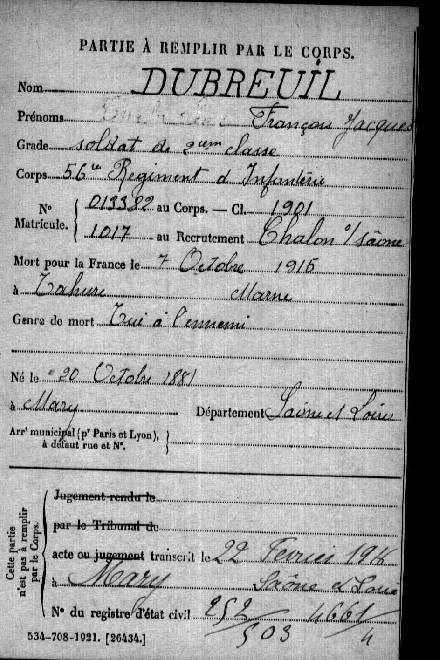 PARTIE À REMPLIR PAR LE CORPS.
Nom DUBREUIL
Prénoms François Jacques
Grade soldat de 2em classe
Corps 56e Régiment d'Infanterie
N° Matricule. 013382 au Corps. — Cl. 1901
1017 au Recrutement Chalon s/saône
Mort pour la France le 7 Octobre 1915
à Tahure Marne
Genre de mort Tué à l'ennemi
Né le 20 Octobre 1881
à Mary Département Saône et Loire
Arrt municipal (pr Paris et Lyon),
à défaut rue et N°.
Cette partie n'est pas à remplir par le Corps.
Jugement rendu le
par le Tribunal de
acte ou jugement transcrit le 22 Fevrier 1916
à Mary Saône et Loire
N° du registre d'état civil 252 4661
503 4
534-708-1921. [26434.]